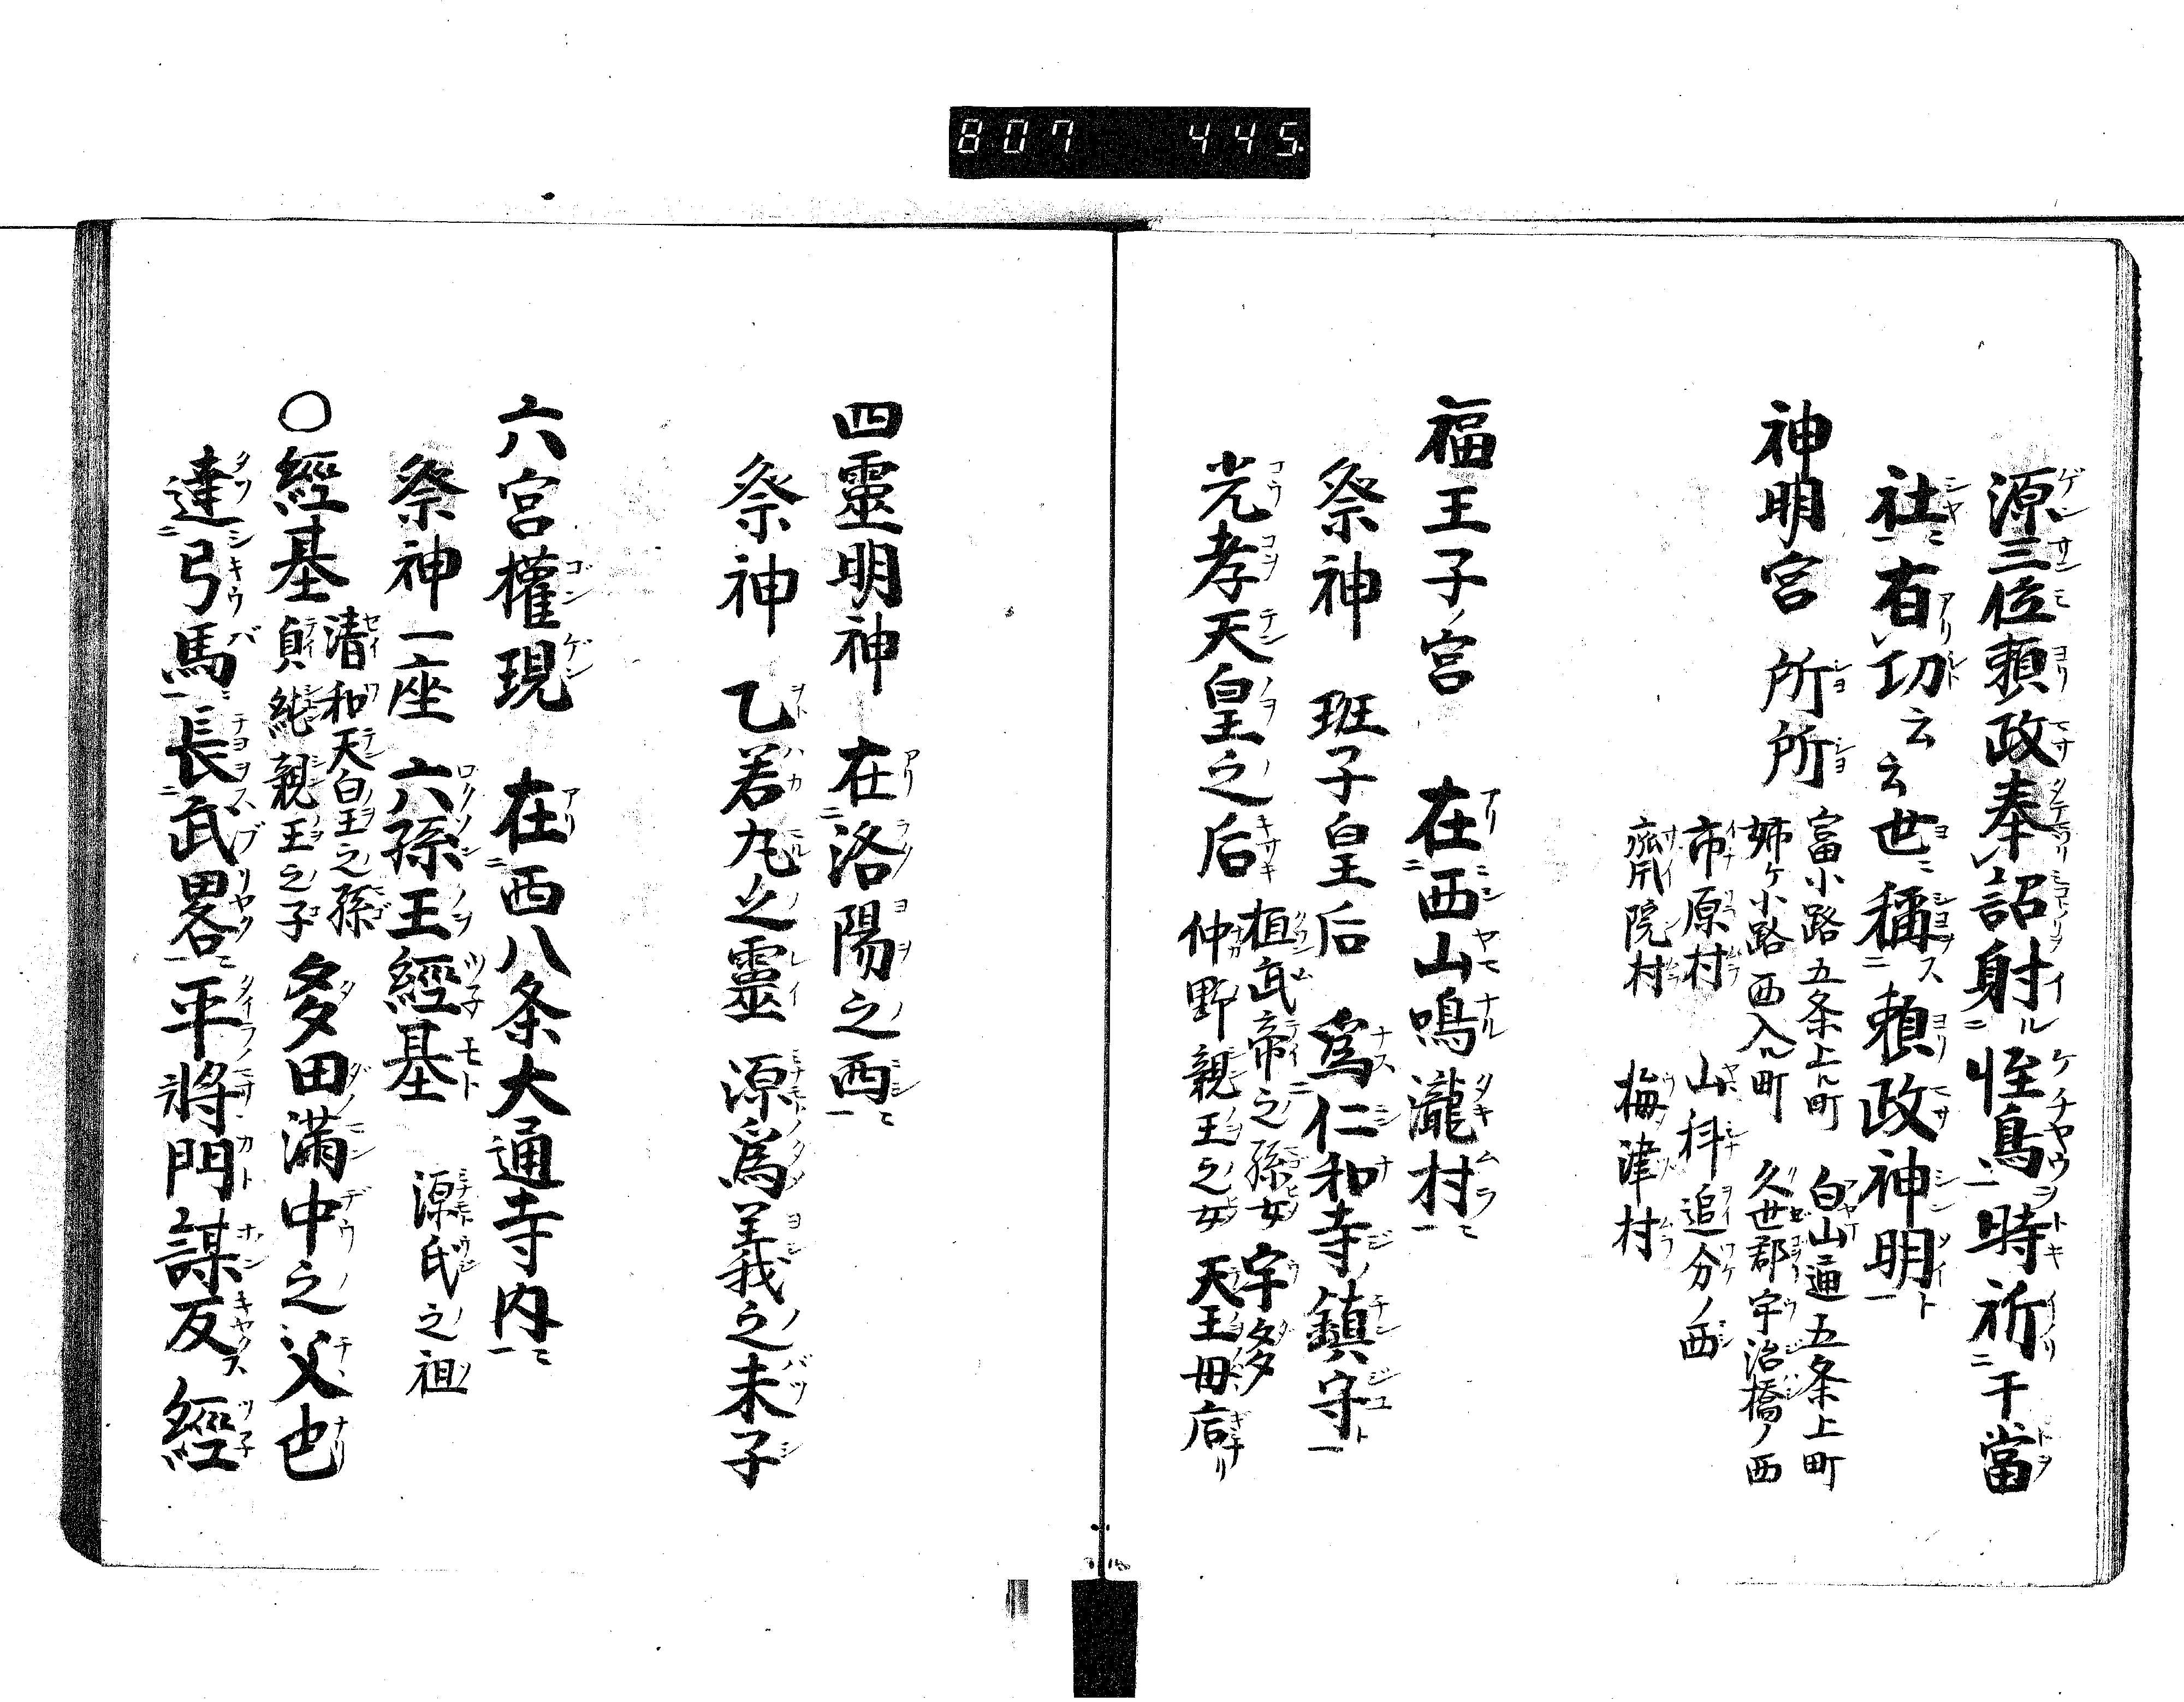 807 445.
源三位頼政奉詔射恠鳥時祈干當
社有切云云世稱頼政神明
神明宮 所所
富小路五条上ル町 白山通五条上町
姉ケ小路西入ル町 久世郡宇治橋ノ西
市原村 山科追分ノ西
齋院村 梅津村
福王子ノ宮 在西山鳴瀧村
祭神 班子皇后 爲仁和寺鎮守
光孝天皇之后
桓武帝之孫女
仲野親王之女
宇多
天王母后
四靈明神 在洛陽之西
祭神 乙若丸之靈 源爲義之末子
六宮權現 在西八条大通寺内
祭神一座 六孫王經基 源氏之祖
〇經基
清和天皇之孫
貞純親王之子
多田満中之父也
達弓馬長武畧平將門謀反 經